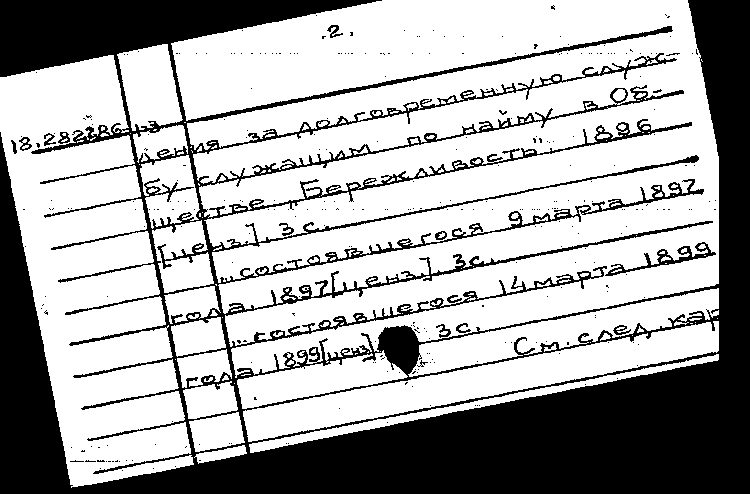 .2.
18.282386-1-3
дения за долговременную служ-
бу служащим по найму в Об-
ществе „Бережливость". 1896
[ценз.]. 3 с.
...состоявшегося 9 марта 1897
года. 1897[ценз.]. 3с.
...состоявшегося 14 марта 1899
года. 1899[ценз] 3с.
См. след. кар